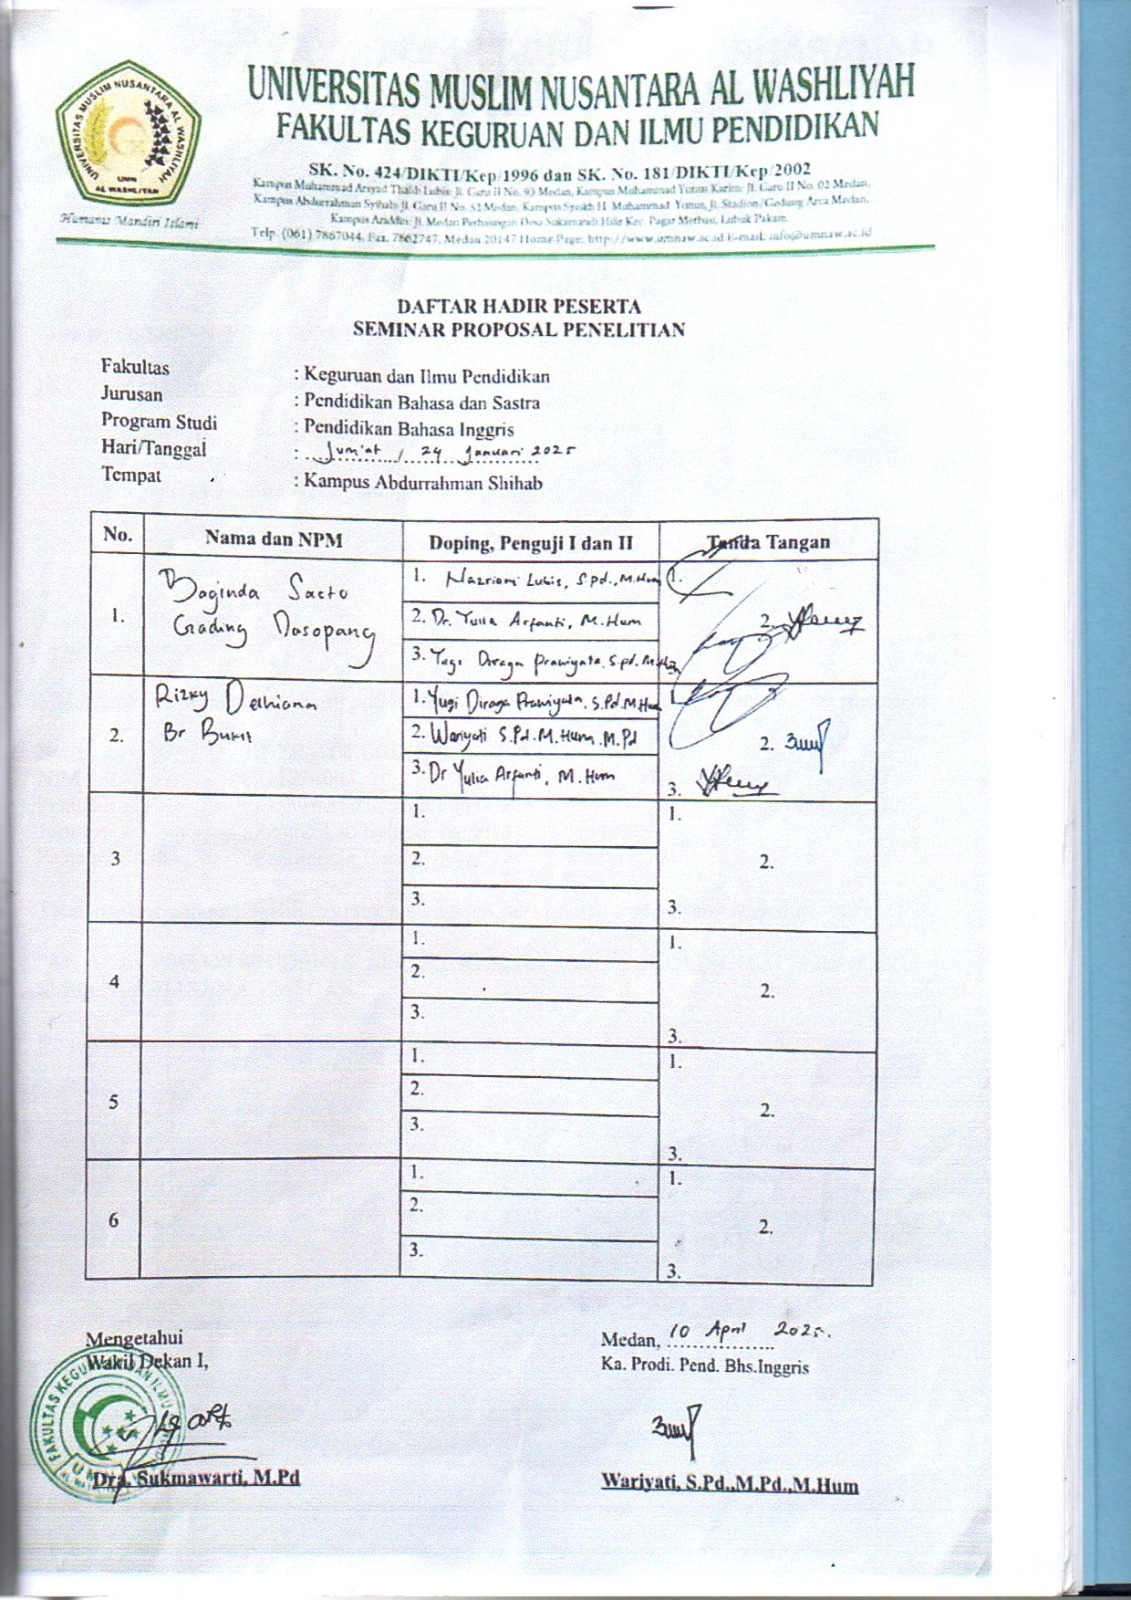 UNIVERSITAS MUSLIM NUSANTARA AL WASHLIYAH
FAKULTAS KEGURUAN DAN ILMU PENDIDIKAN
SK. No. 424/DIKTI/Kep/1996 dan SK. No. 181/DIKTI/Kep/2002
Kampus Muhammad Arsyad Thalib Lubis: Jl. Garu II No. 93 Medan, Kampus Muhammad Yunus Karim: Jl. Garu II No. 02 Medan,
Kampus Abdurrahman Syihab: Jl. Garu II No. 52 Medan, Kampus Syeikh H. Muhammad Yunus, Jl. Stadion/Gedung Arca Medan,
Kampus Aziddin: Jl. Medan Perbaungan Desa Sukamandi Hilir Kec. Pagar Merbau, Lubuk Pakam.
Telp. (061) 7867044, Fax. 7862747, Medan 20147 Home Page: http://www.umnaw.ac.id E-mail: info@umnaw.ac.id
UNIVERSITAS MUSLIM NUSANTARA AL WASHLIYAH
UMN
AL WASHLIYAH
Humanis Mandiri Islami
DAFTAR HADIR PESERTA
SEMINAR PROPOSAL PENELITIAN
Fakultas : Keguruan dan Ilmu Pendidikan
Jurusan : Pendidikan Bahasa dan Sastra
Program Studi : Pendidikan Bahasa Inggris
Hari/Tanggal : Jum'at, 24 Januari 2025
Tempat : Kampus Abdurrahman Shihab
No. Nama dan NPM Doping, Penguji I dan II Tanda Tangan
1. Baginda Sacto
Grading Nasopang
1. Nazriani Lubis, S.pd., M.Hum 1.
2. Dr. Yulia Arfanti, M.Hum 2.
3. Yugi Diraga Prawiyata, S.pd. M.Hum 3.
2. Rizky
Br
1. Yugi Diraga Prawiyata. S.Pd. M.Hum 1.
2. Wariyati S.Pd. M.Hum. M.Pd 2.
3. Dr Yulia Arfanti, M.Hum 3.
3
1. 1.
2. 2.
3. 3.
4
1. 1.
2. 2.
3. 3.
5
1. 1.
2. 2.
3. 3.
6
1. 1.
2. 2.
3. 3.
Mengetahui
Wakil Dekan I,
Dra. Sukmawarti, M.Pd
Medan, 10 April 2025.
Ka. Prodi. Pend. Bhs.Inggris
Wariyati, S.Pd.,M.Pd.,M.Hum